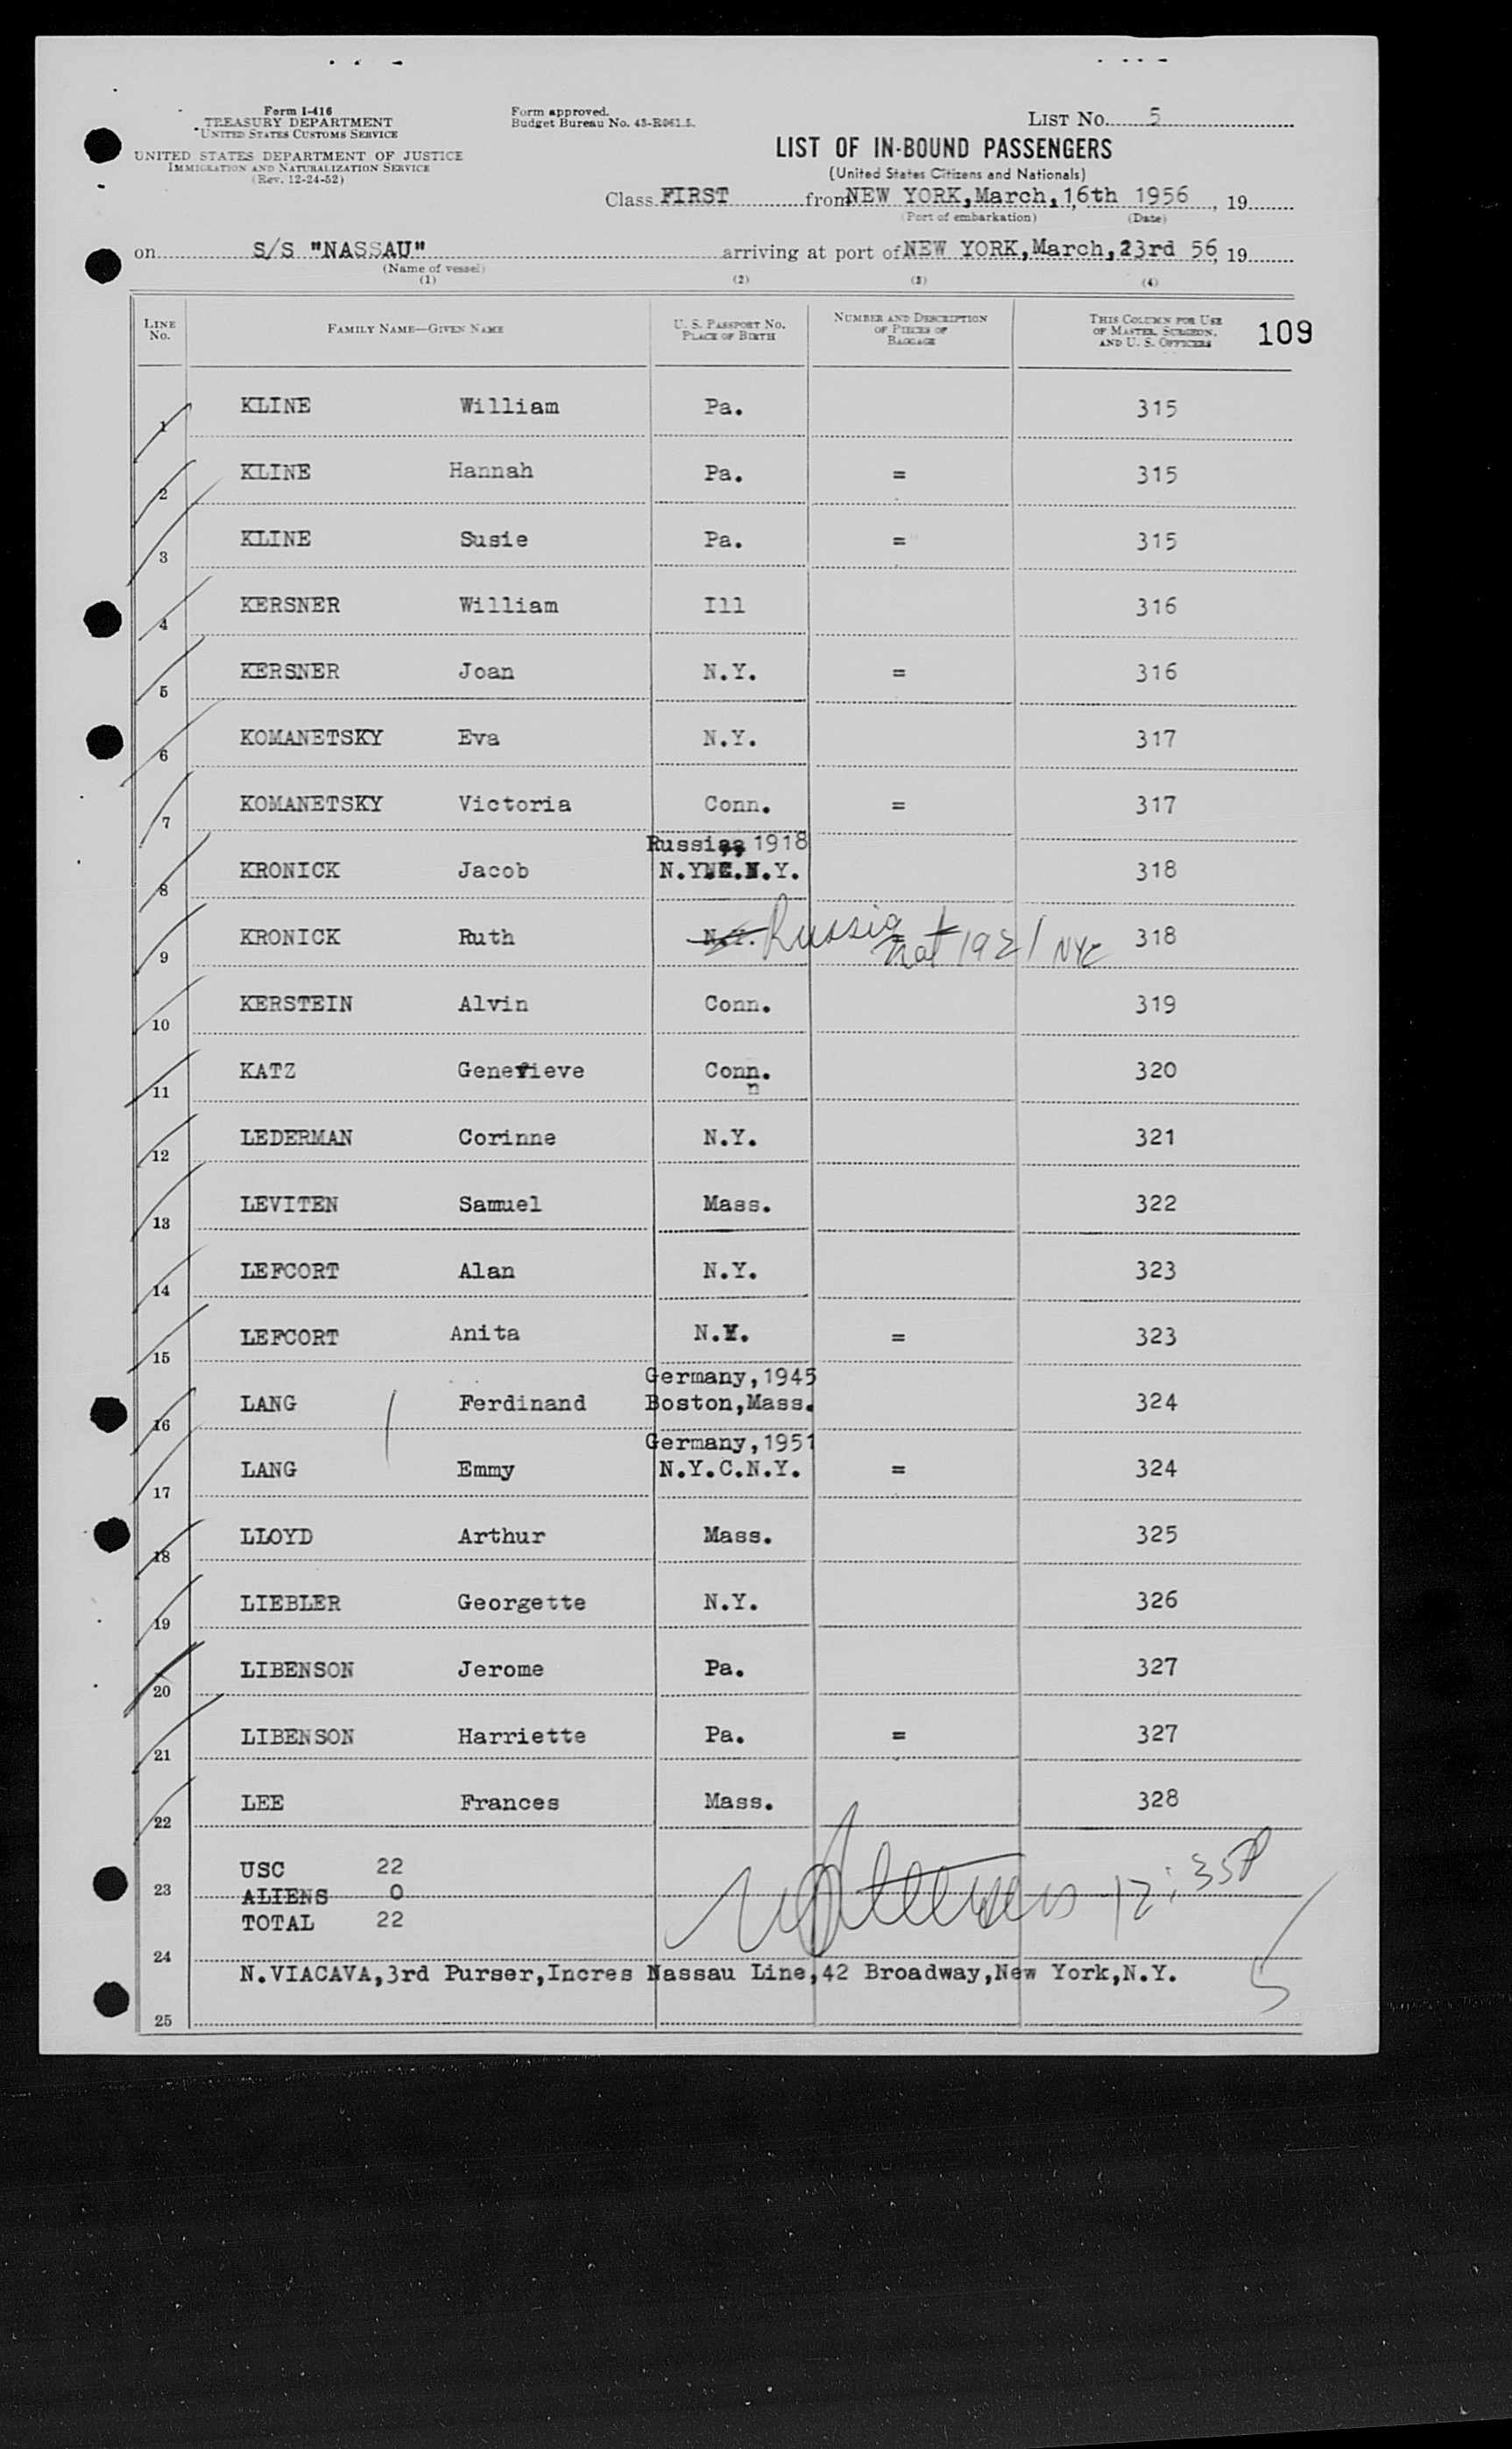 Form I-416
TREASURY DEPARTMENT
UNITED STATES CUSTOMS SERVICE
UNITED STATES DEPARTMENT OF JUSTICE
IMMIGRATION AND NATURALIZATION SERVICE
(Rev. 12-24-52)
Form approved.
Budget Bureau No. 43-R061.5.
LIST No. 5
LIST OF IN-BOUND PASSENGERS
(United States Citizens and Nationals)
Class FIRST from NEW YORK, March, 16th 1956, 19
(Port of embarkation) (Date)
on S/S "NASSAU" arriving at port of NEW YORK, March, 23rd 56, 19
(Name of vessel)
(1) (2) (3) (4)
LINE No. FAMILY NAME—GIVEN NAME U. S. PASSPORT No. PLACE OF BIRTH NUMBER AND DESCRIPTION OF PIECES OF BAGGAGE THIS COLUMN FOR USE OF MASTER, SURGEON, AND U. S. OFFICERS 109
1 KLINE William Pa. 315
2 KLINE Hannah Pa. = 315
3 KLINE Susie Pa. = 315
4 KERSNER William Ill 316
5 KERSNER Joan N.Y. = 316
6 KOMANETSKY Eva N.Y. 317
7 KOMANETSKY Victoria Conn. = 317
Russia, 1918
8 KRONICK Jacob N.Y.C.N.Y. 318
9 KRONICK Ruth N.Y. Russia nat 1921 NYC 318
10 KERSTEIN Alvin Conn. 319
11 KATZ Genevieve Conn. 320
n
12 LEDERMAN Corinne N.Y. 321
13 LEVITEN Samuel Mass. 322
14 LEFCORT Alan N.Y. 323
15 LEFCORT Anita N.Y. = 323
Germany,1945
16 LANG Ferdinand Boston,Mass. 324
Germany,1951
17 LANG Emmy N.Y.C.N.Y. = 324
18 LLOYD Arthur Mass. 325
19 LIEBLER Georgette N.Y. 326
20 LIBENSON Jerome Pa. 327
21 LIBENSON Harriette Pa. = 327
22 LEE Frances Mass. 328
USC 22
23 ALIENS 0 12:35P
TOTAL 22
24
N.VIACAVA,3rd Purser,Incres Nassau Line,42 Broadway,New York,N.Y.
5
25